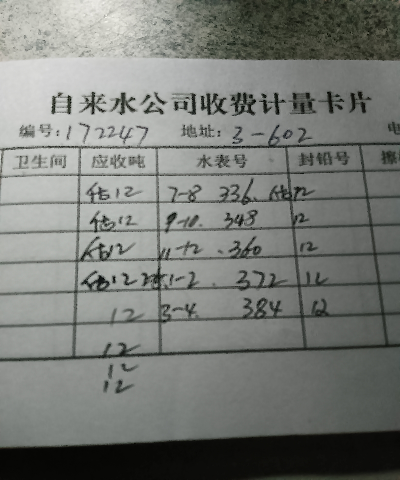 自来水公司收费计量卡片
编号:172247 地址:3-602
卫生间 应收吨 水表号 封铅号
估12 7-8 336. 估12
估12 9-10. 348 12
估12 11-12 .360 12
估12 1-2. 372 12
12 3-4. 384 12
12
12
12